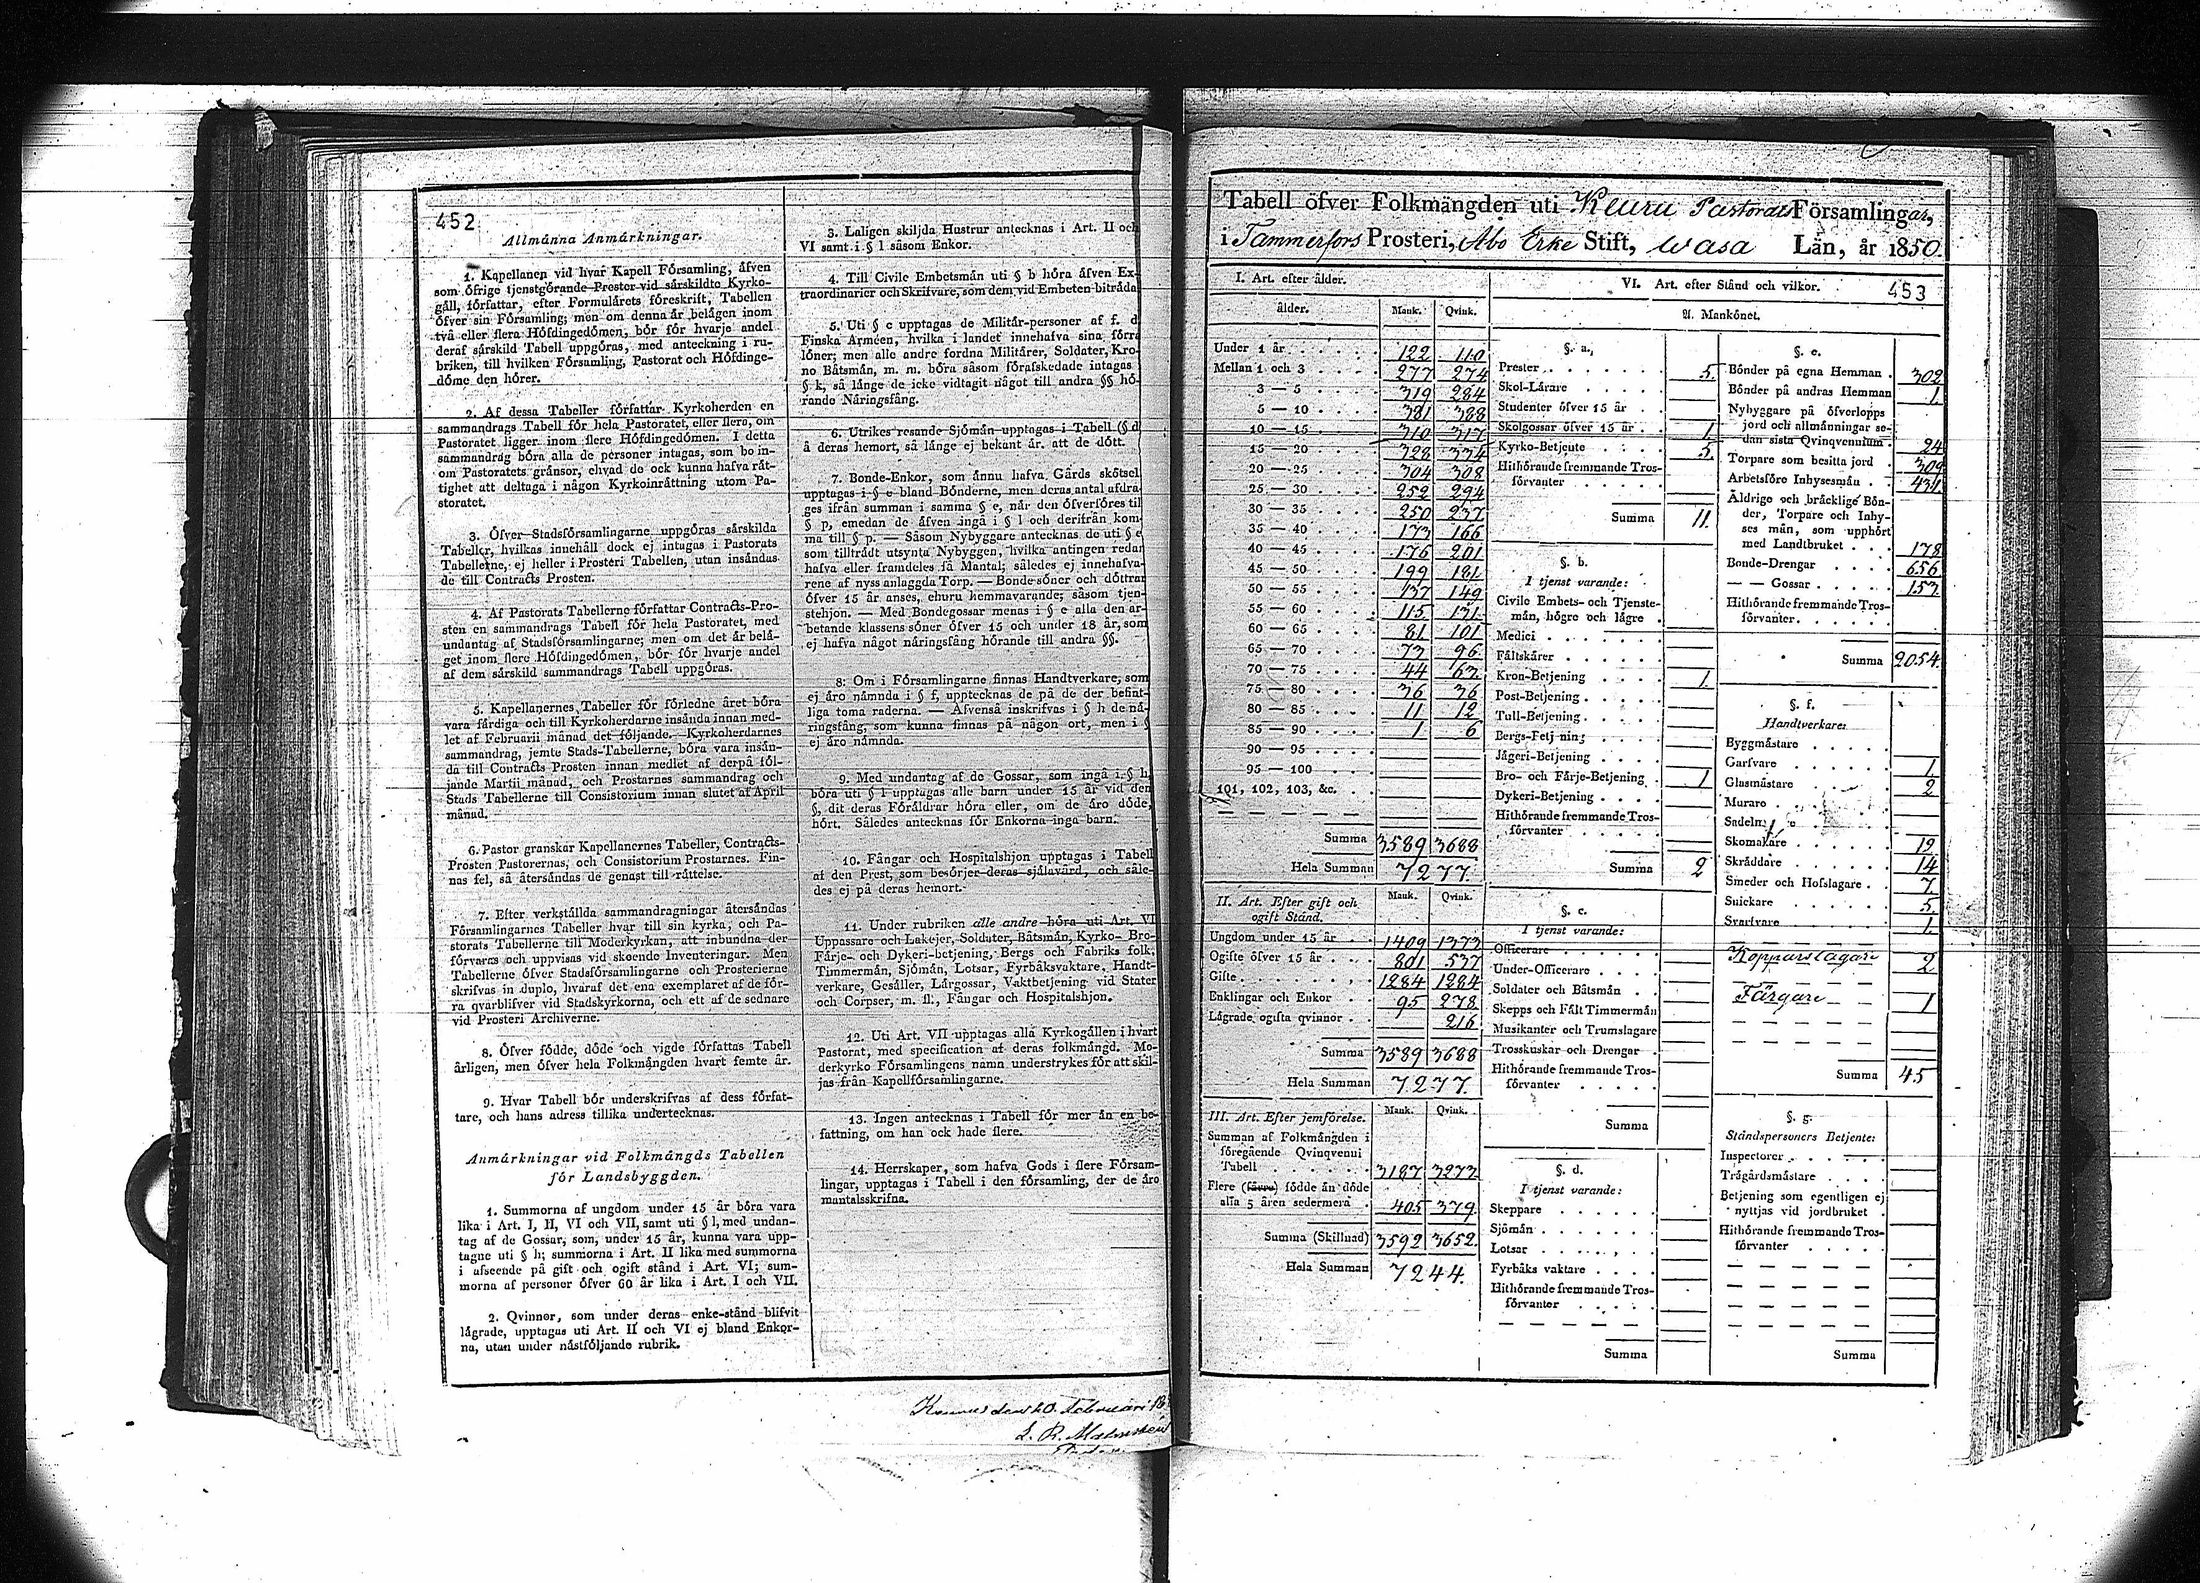 452
Allmänna Anmärkningar.
1. Kapellanen vid hvar Kapell Församling, äfven
som öfrige tjenstgörande Prester vid särskildte Kyrko-
gäll, författar, efter Formulärets föreskrift, Tabellen
öfver sin Församling; men om denna är belägen inom
två eller flera Höfdingedömen, bör för hvarje andel
deraf särskild Tabell uppgöras, med anteckning i ru-
briken, till hvilken Församling, Pastorat och Höfdinge-
döme den hörer.
2. Af dessa Tabeller författar Kyrkoherden en
sammandrags Tabell för hela Pastoratet, eller flera, om
Pastoratet ligger inom flere Höfdingedömen. I detta
sammandrag böra alla de personer intagas, som bo in-
om Pastoratets gränsor, ehvad de ock kunna hafva rät-
tighet att deltaga i någon Kyrkoinrättning utom Pa-
storatet.
3. Öfver Stadsförsamlingarne uppgöras särskilda
Tabeller, hvilkas innehåll dock ej intagas i Pastorats
Tabellerne, ej heller i Prosteri Tabellen, utan insändas
de till Contracts Prosten.
4. Af Pastorats Tabellerne författar Contracts-Pro-
sten en sammandrags Tabell för hela Pastoratet, med
undantag af Stadsförsamlingarne; men om det är belä-
get inom flere Höfdingedömen, bör för hvarje andel
af dem särskild sammandrags Tabell uppgöras.
5. Kapellanernes Tabeller för förledne året böra
vara färdiga och till Kyrkoherdarne insända innan med-
let af Februarii månad det följande. Kyrkoherdarnes
sammandrag, jemte Stads-Tabellerne, böra vara insän-
da till Contracts Prosten innan medlet af derpå föl-
jande Martii månad, och Prostarnes sammandrag och
Stads Tabellerne till Consistorium innan slutet af April
månad.
6. Pastor granskar Kapellanernes Tabeller, Contracts-
Prosten Pastorernas, och Consistorium Prostarnes. Fin-
nas fel, så återsändas de genast till rättelse.
7. Efter verkställda sammandragningar återsändas
Församlingarnes Tabeller hvar till sin kyrka, och Pa-
storats Tabellerne till Moderkyrkan, att inbundna der
förvaras och uppvisas vid skoende Inventeringar. Men
Tabellerne öfver Stadsförsamlingarne och Prosterierne
skrifvas in duplo, hvaraf det ena exemplaret af de för-
ra qvarblifver vid Stadskyrkorna, och ett af de sednare
vid Prosteri Archiverne.
8. Öfver födde, döde och vigde författas Tabell
årligen, men öfver hela Folkmängden hvart femte år.
9. Hvar Tabell bör underskrifvas af dess förfat-
tare, och hans adress tillika undertecknas.
Anmärkningar vid Folkmängds Tabellen
för Landsbyggden.
1. Summorna af ungdom under 15 år böra vara
lika i Art. I, II, VI och VII, samt uti § l, med undan-
tag af de Gossar, som, under 15 år, kunna vara upp-
tagne uti § h; summorna i Art. II lika med summorna
i afseende på gift och ogift stånd i Art. VI; sum-
morna af personer öfver 60 år lika i Art. I och VII.
2. Qvinnor, som under deras enke-stånd blifvit
lägrade, upptagas uti Art. II och VI ej bland Enkor-
na, utan under nästföljande rubrik.
3. Laligen skiljda Hustrur antecknas i Art. II och
VI samt i § l såsom Enkor.
4. Till Civile Embetsmän uti § b höra äfven Ex-
traordinarier och Skrifvare, som dem vid Embeten biträda
5. Uti § c upptagas de Militär-personer af f. d
Finska Arméen, hvilka i landet innehafva sina förra
löner; men alle andre fordna Militärer, Soldater, Kro-
no Båtsmän, m. m. böra såsom förafskedade intagas
§ k, så länge de icke vidtagit något till andra §§ hö-
rande Näringsfång.
6. Utrikes resande Sjömän upptagas i Tabell (§ d
å deras hemort, så länge ej bekant är, att de dött.
7. Bonde-Enkor, som ännu hafva Gårds skötsel
upptagas i § e bland Bönderne, men deras antal afdra-
ges ifrån summan i samma § e, när den öfverföres til
§ p, emedan de äfven ingå i § l och derifrån kom-
ma till § p. — Såsom Nybyggare antecknas de uti § e
som tillträdt utsynta Nybyggen, hvilka antingen redan
hafva eller framdeles få Mantal; således ej innehafva-
rene af nyss anlaggda Torp. — Bonde-söner och döttrar
öfver 15 år anses, ehuru hemmavarande; såsom tjen-
stehjon. — Med Bondegossar menas i § e alla den ar-
betande klassens söner öfver 15 och under 18 år, som
ej hafva något näringsfång hörande till andra §§.
8: Om i Församlingarne finnas Handtverkare, som
ej äro nämnda i § f, upptecknas de på de der befint-
liga toma raderna. — Äfvenså inskrifvas i § h de nä-
ringsfång, som kunna finnas på någon ort, men i §
ej äro nämnda.
9. Med undantag af de Gossar, som ingå i § h
böra uti § l upptagas alle barn under 15 år vid den
§, dit deras Föräldrar höra eller, om de äro döde,
hört. Således antecknas för Enkorna inga barn.
10. Fångar och Hospitalshjon upptagas i Tabell
af den Prest, som besörjer deras själavård, och såle-
des ej på deras hemort.
11. Under rubriken alle andre höra uti Art. VI
Uppassare och Lakejer, Soldater, Båtsmän, Kyrko- Bro-
Färje- och Dykeri-betjening, Bergs och Fabriks folk,
Timmermän, Sjömän, Lotsar, Fyrbåksvaktare, Handt-
verkare, Gesäller, Lärgossar, Vaktbetjening vid Stater
och Corpser, m. fl.; Fångar och Hospitalshjon.
12. Uti Art. VII upptagas alla Kyrkogällen i hvart
Pastorat, med specification af deras folkmängd. Mo-
derkyrko Församlingens namn understrykes för att skil-
jas från Kapellförsamlingarne.
13. Ingen antecknas i Tabell för mer än en be-
fattning, om han ock hade flere.
14. Herrskaper, som hafva Gods i flere Försam-
lingar, upptagas i Tabell i den församling, der de äro
mantalsskrifna.
Februari
L. R. Malmstén
Tabell öfver Folkmängden uti Keuru Pastorats Församlingar,
i Tammerfors Prosteri, Åbo Erke Stift, Wasa Län, år 1850.
I. Art. efter ålder.
ålder. Mank. Qvink.
Under 1 år 122 110
Mellan 1 och 3 277 274
3 — 5 319 284
5 — 10 381 388
10 — 15 310 317
15 — 20 328 334
20 — 25 304 308
25 — 30 252 294
30 — 35 250 237
35 — 40 173 166
40 — 45 176 201
45 — 50 199 181
50 — 55 137 149
55 — 60 115 131
60 — 65 81 101
65 — 70 73 96
70 — 75 44 63
75 — 80 36 36
80 — 85 11 12
85 — 90 1 6
90 — 95
95 — 100
101, 102, 103, &c.
Summa 3589 3688
Hela Summan 7277
II. Art. Efter gift och
ogift Stånd. Mank. Qvink.
Ungdom under 15 år 1409 1373
Ogifte öfver 15 år 801 537
Gifte 1284 1284
Enklingar och Enkor 95 278
Lägrade ogifta qvinnor 216
Summa 3589 3688
Hela Summan 7277.
III. Art. Efter jemförelse. Mank. Qvink.
Summan af Folkmängden i
föregående Qvinqvenni
Tabell 3187 3273
Flere (färre) födde än döde
alla 5 åren sedermera 405 379
Summa (Skillnad) 3592 3652
Hela Summan 7244.
VI. Art. efter Stånd och vilkor. 453
A. Mankönet.
§. a,
Prester 5.
Skol-Lärare
Studenter öfver 15 år
Skolgossar öfver 15 år 1
Kyrko-Betjente 5.
Hithörande fremmande Tros-
förvanter
Summa 11.
§. b.
I tjenst varande:
Civile Embets- och Tjenste-
män, högre och lägre
Medici
Fältskärer
Kron-Betjening 1.
Post-Betjening
Tull-Betjening
Bergs-Betjening
Jägeri-Betjening
Bro- och Färje-Betjening 1
Dykeri-Betjening
Hithörande fremmande Tros-
förvanter
Summa 2
§. c.
I tjenst varande:
Officerare
Under-Officerare
Soldater och Båtsmän
Skepps och Fält Timmermän
Musikanter och Trumslagare
Trosskuskar och Drengar
Hithörande fremmande Tros-
förvanter
Summa
§. d.
I tjenst varande:
Skeppare
Sjömän
Lotsar
Fyrbåks vaktare
Hithörande fremmande Tros-
förvanter
Summa
§. e.
Bönder på egna Hemman 302
Bönder på andras Hemman 1.
Nybyggare på öfverlopps
jord och allmänningar se-
dan sista Qvinqvennium 24
Torpare som besitta jord 309
Arbetsföre Inhysesmän 431
Äldrige och bräcklige Bön-
der, Torpare och Inhy-
ses män, som upphört
med Landtbruket 178
Bonde-Drengar 656
— — Gossar 153
Hithörande fremmande Tros-
förvanter
Summa 2054.
§. f.
Handtverkare:
Byggmästare
Garfvare 1.
Glasmästare 2
Murare
Sadelm
Skomakare 12
Skräddare 14
Smeder och Hofslagare 7.
Snickare 5.
Svarfvare 1.
Kopparslagare 2
Färgare 1
Summa 45
§. g.
Ståndspersoners Betjente:
Inspectorer
Trägårdsmästare
Betjening som egentligen ej
nyttjas vid jordbruket
Hithörande fremmande Tros-
förvanter
Summa